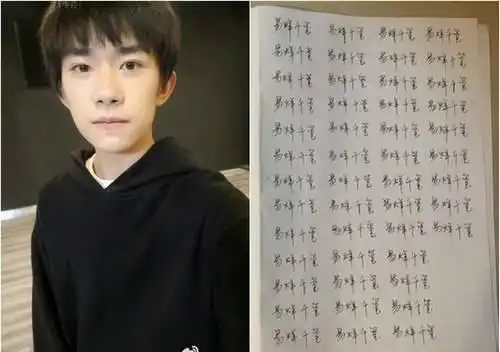 易烊千玺 易烊千玺 易烊千玺 易烊千玺
易烊千玺 易烊千玺 易烊千玺 易烊千玺
易烊千玺 易烊千玺 易烊千玺 易烊千玺
易烊千玺 易烊千玺 易烊千玺 易烊千玺
易烊千玺 易烊千玺 易烊千玺 易烊千玺
易烊千玺 易烊千玺 易烊千玺 易烊千玺
易烊千玺 易烊千玺 易烊千玺 易烊千玺
易烊千玺 易烊千玺 易烊千玺 易烊千玺
易烊千玺 易烊千玺 易烊千玺 易烊千玺
易烊千玺 易烊千玺 易烊千玺
易烊千玺 易烊千玺 易烊千玺
易烊千玺 易烊千玺 易烊千玺
易烊千玺 易烊千玺 易烊千玺